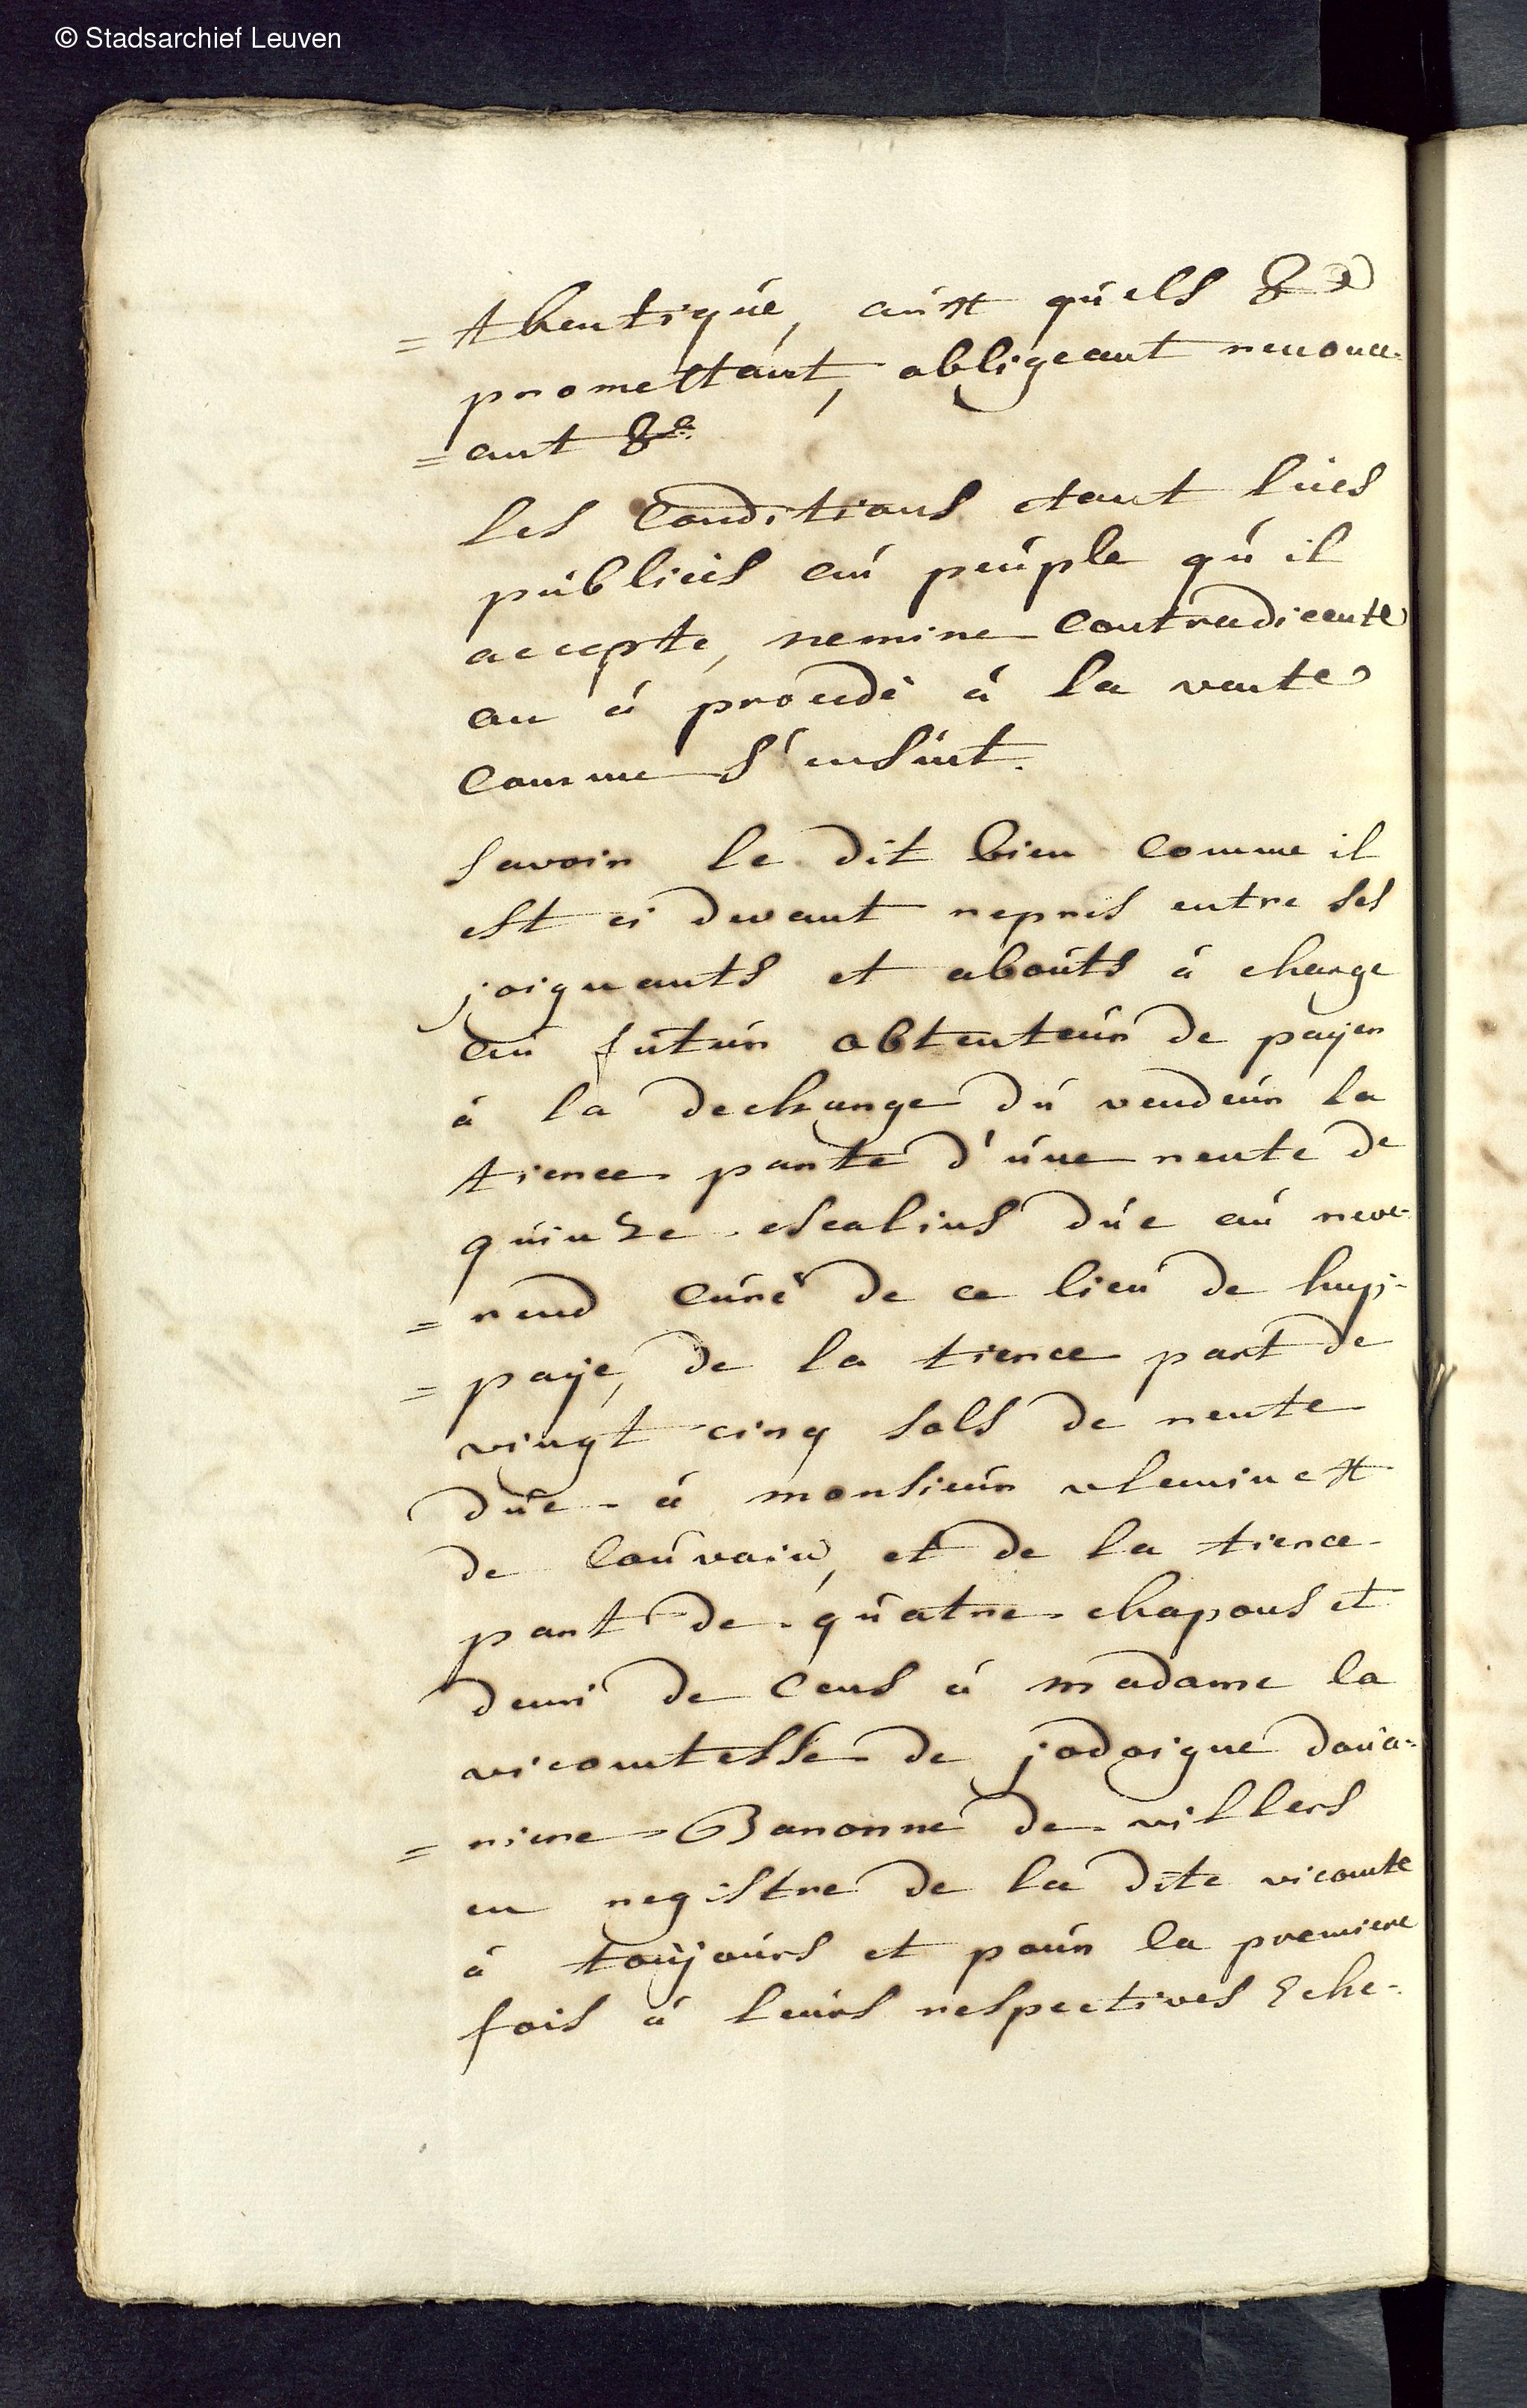 © Stadsarchief Leuven
= thentique, aux quels &a
promettant, obligeant renonce-
= ant &a.
les Conditions etant luës
publiéës au peuple qu'il
accepte, nemine Contradicente
on à procedé à la vente
Comme s'ensuit.
Savoir le dit bien Comme il
est ci devant repris entre ses
joignants et abouts à charge
au futur obtenteur de payer
à la decharge du vendeur la
tierce parte d'une rente de
quinze escalins dúe au reve-
= rend Curé de ce lieu de hup-
= paÿe, de la tierce part de
vingt cinq sols de rente
dúe à monsieur vleminckx
de Louvain, et de la tierce
part de quatre chapons et
demi de Cens à madame la
vicomtesse de jodoigne doüa-
= riere Baronne de villers
en registre de la dite vicomte
à toujours et pour la premiere
fois à leurs respectives Eche-